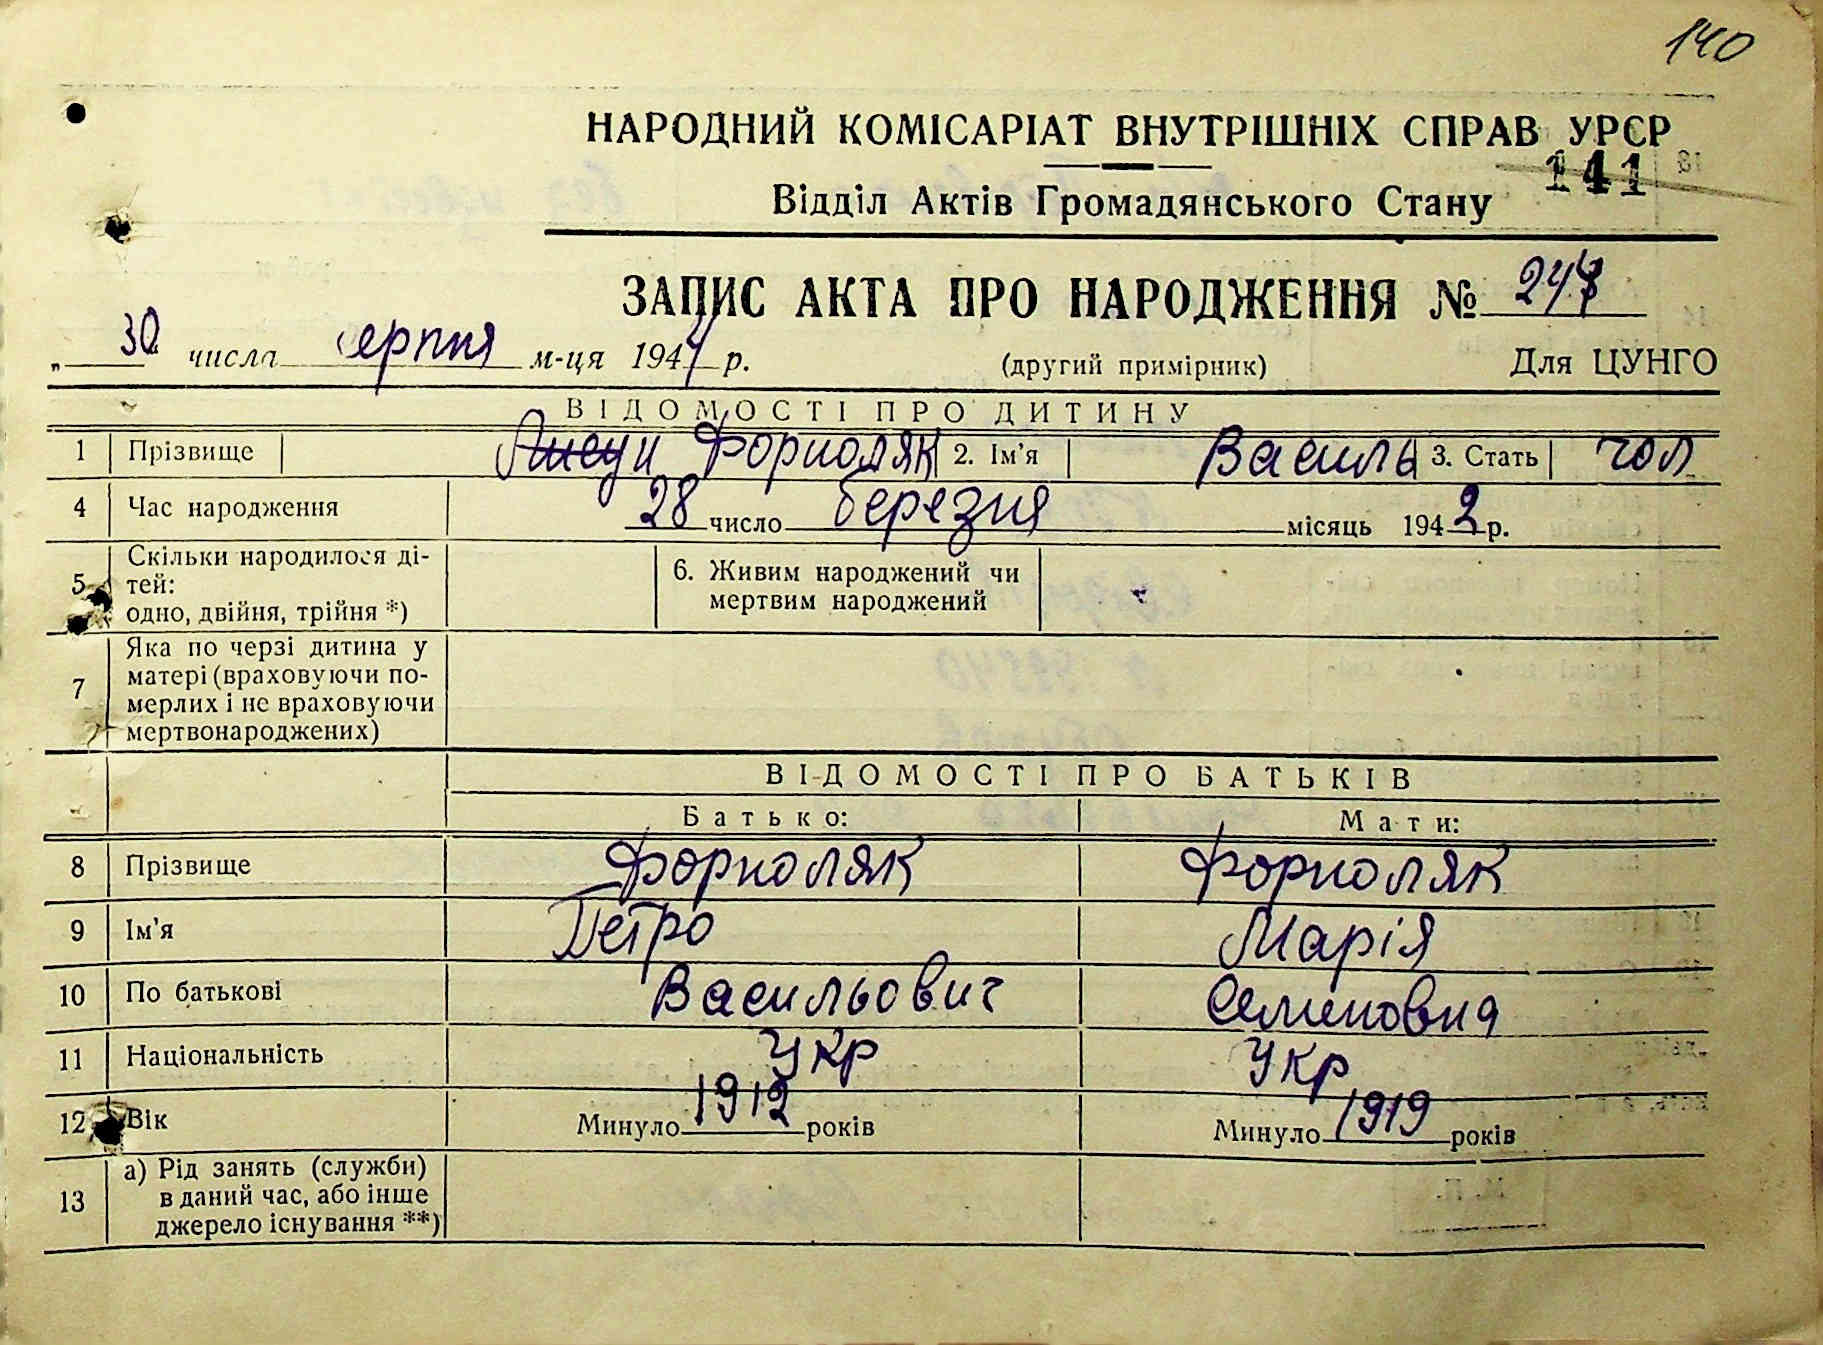 140
НАРОДНИЙ КОМІСАРІАТ ВНУТРІШНІХ СПРАВ УРСР
141
Відділ Актів Громадянського Стану
ЗАПИС АКТА ПРО НАРОДЖЕННЯ № 247
„ 30 числа серпня м-ця 1944 р. (другий примірник) Для ЦУНГО
ВІДОМОСТІ ПРО ДИТИНУ
1 Прізвище Форноляк 2. Ім'я Василь 3. Стать чол
4 Час народження 28 число березня місяць 1942 р.
5 Скільки народилося ді-
тей:
одно, двійня, трійня *)
6. Живим народжений чи
мертвим народжений
7 Яка по черзі дитина у
матері (враховуючи по-
мерлих і не враховуючи
мертвонароджених)
ВІДОМОСТІ ПРО БАТЬКІВ
Батько: Мати:
8 Прізвище Форноляк Форноляк
9 Ім'я Петро Марія
10 По батькові Васильович Семеновна
11 Національність Укр Укр
12 Вік Минуло 1912 років Минуло 1919 років
13 а) Рід занять (служби)
в даний час, або інше
джерело існування **)